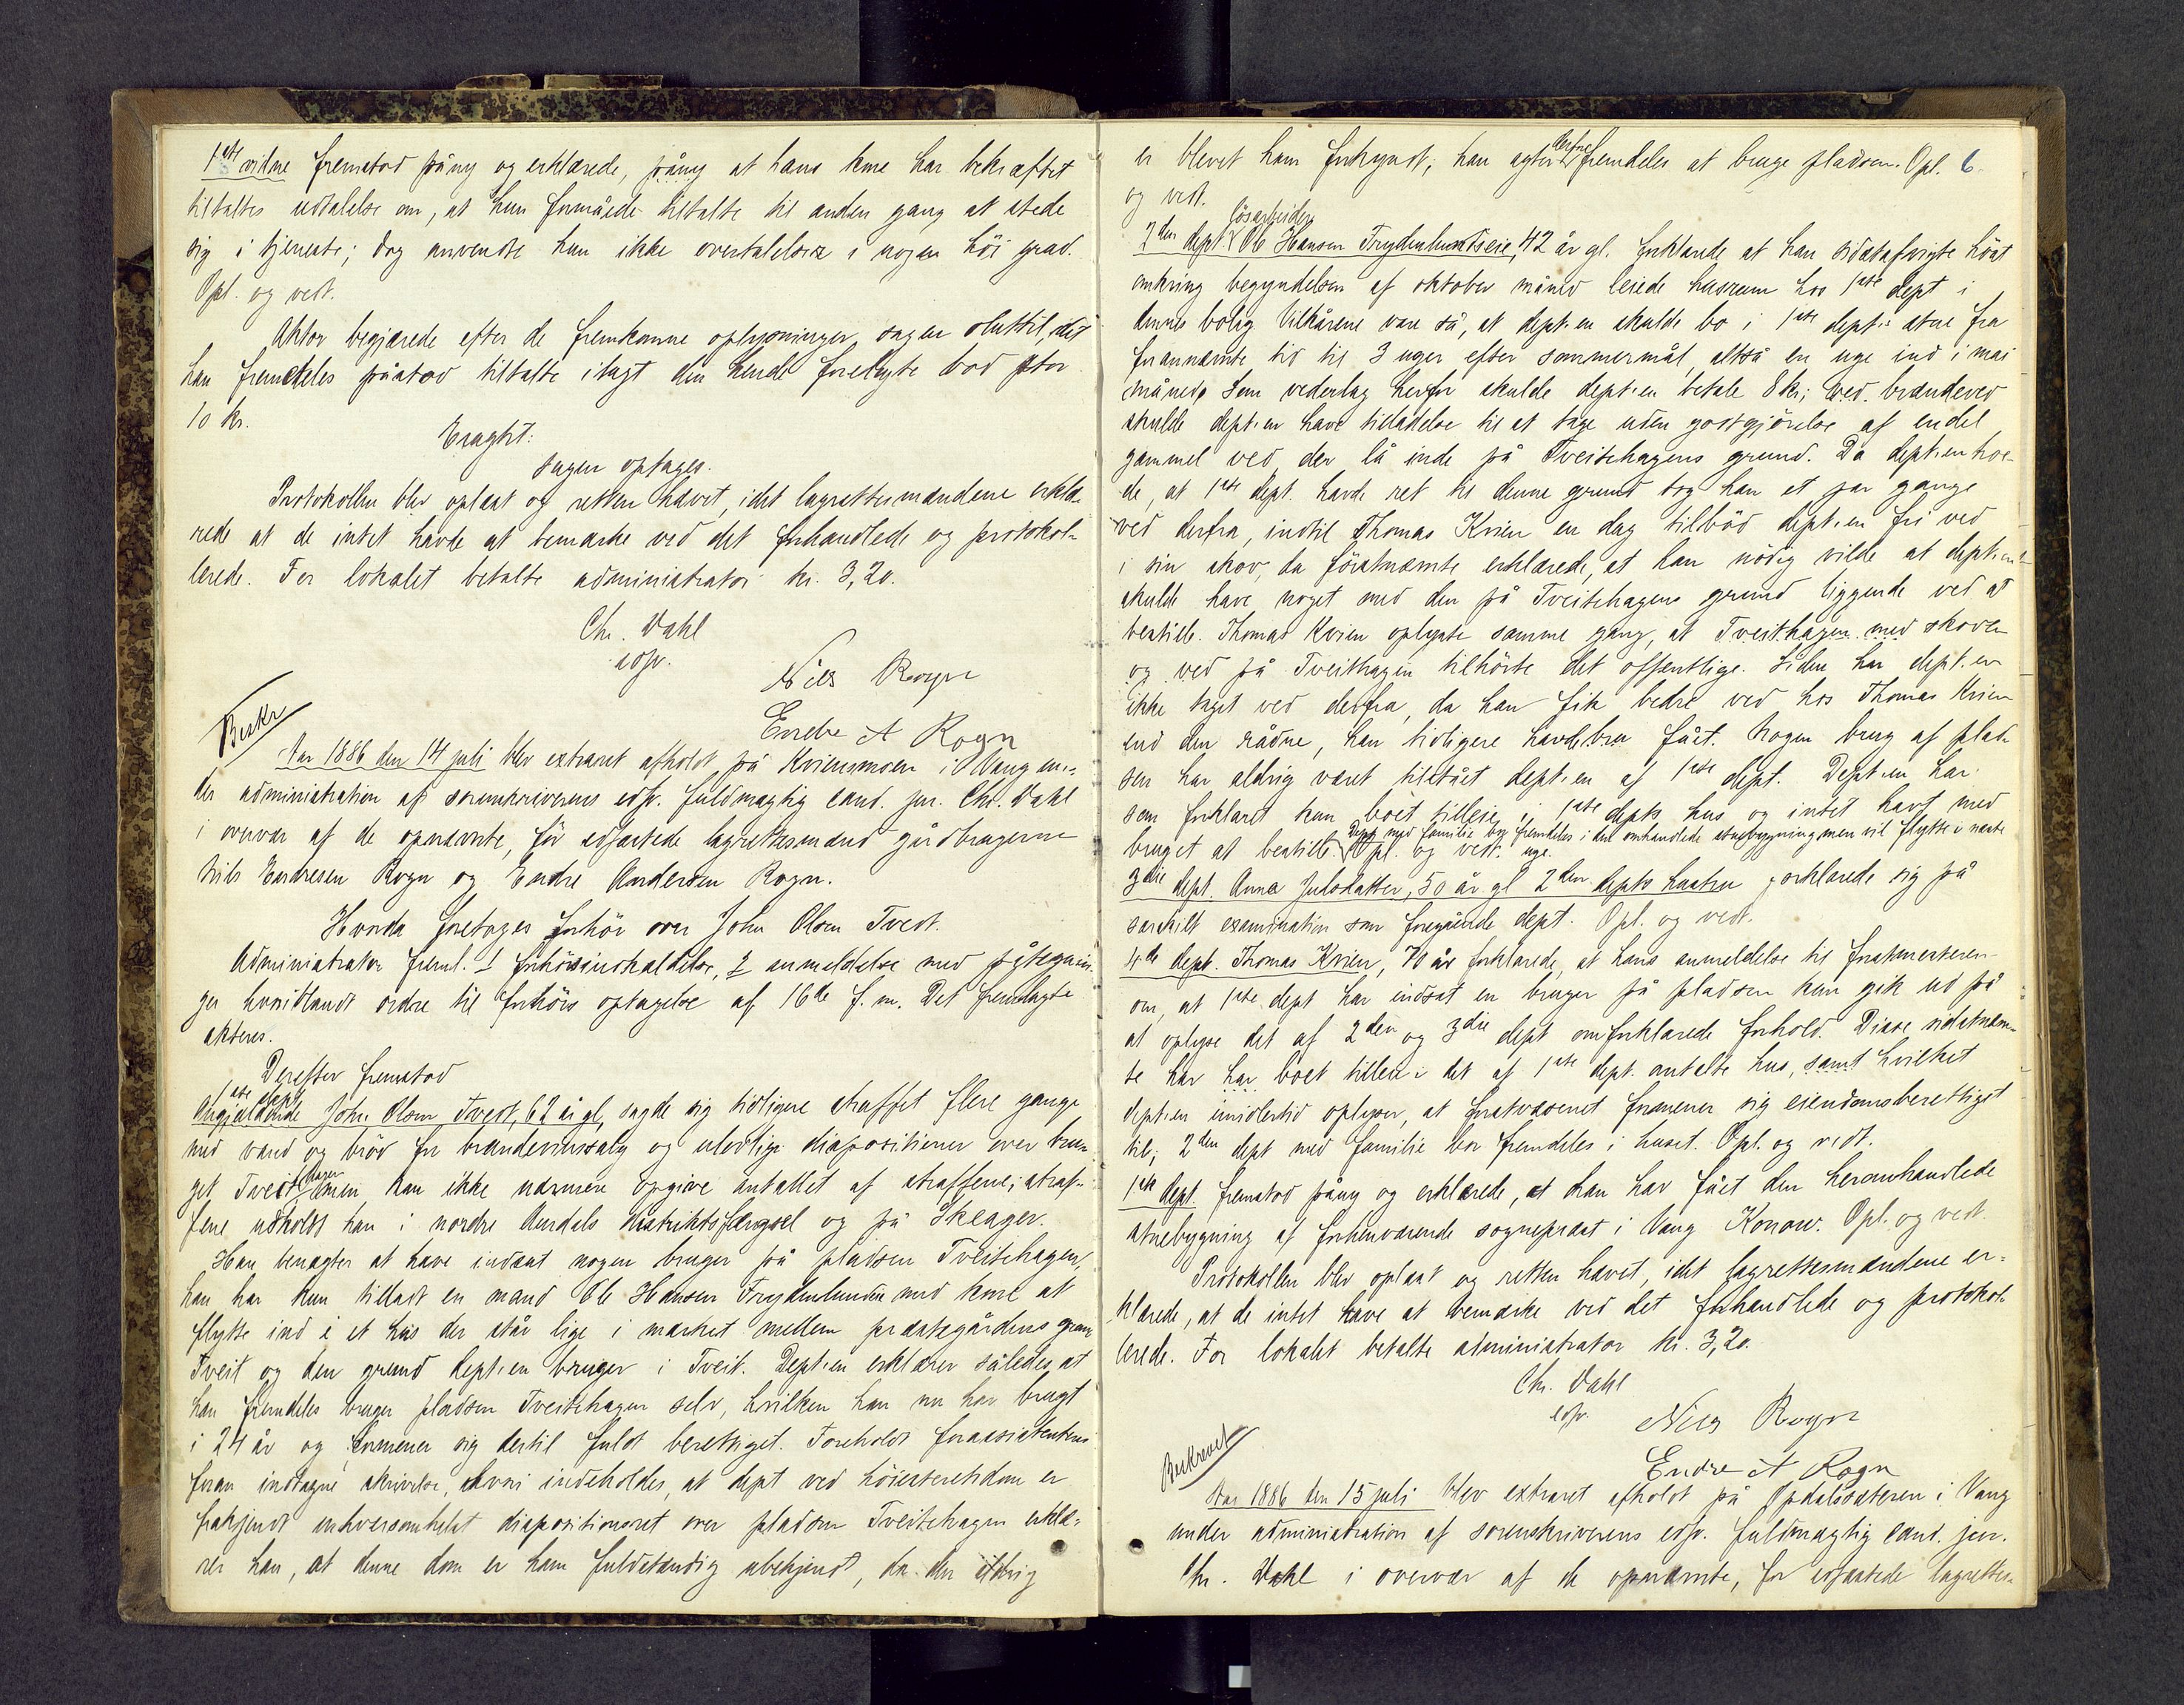 1ste vidne fremstod påny og erklærede, påny at hans kone har bekræftet
tiltaltes udtalelse om, at hun formåede tiltalte til anden gang at stede
sig i tjeneste; dog anvendte hun ikke overtalelser i nogen höi grad.
Opl. og vedt.
Aktor begjærede efter de fremkomne oplysninger sagen sluttet, idet
han fremdeles påstod tiltalte ilagt den hende forelagte bod stor
10 kr.
Eragtet:
Sagen optages.
Protokollen blev oplæst og retten hævet, idet lagrettesmændene erklæ-
rede at de intet havde at bemærke ved det forhandlede og protokol-
lerede. For lokalet betalte administrator kr. 3,20.
Chr. Dahl
edsv.
Nils Rogn
Endre A Rogn
Beskr
Aar 1886 den 14 juli blev extraret afholdt på Kviensmoen i Vang un-
der administration af sorenskriverens edsv. fuldmægtig cand. jur. Chr. Dahl
i overvær af de opnævnte, för edfæstede lagrettesmænd gårdbrugerne
Nils Endresen Rogn og Endre Andersen Rogn.
Hvorda foretages forhör over John Olsen Tvedt.
Administrator freml. 1 forhörsindkaldelse, 2 anmeldelse med påtegnin-
ger hvoriblandt ordre til forhörs optagelse af 16de f. m. Det fremlagte
akteres.
Derefter fremstod
1ste dept
Angjældende John Olsen Tvedt, 62 år gl, sagde sig tidligere straffet flere gange
med vand og bröd for brændevinssalg og ulovlige dispositioner over bru-
get Tveithagen men kan ikke nærmere opgive antallet af straffene; straf-
fene udholdt han i nordre Aurdals distriktsfængsel og på Skeager.
Han benægter at have indsat nogen bruger på pladsen Tveitehagen,
han har kun tilladt en mand Ole Hansen Frydenlund med kone at
flytte ind i et hus der står lige i mærket mellem præstegårdens grund
Tveit og den grund dept:en bruger i Tveit. Dept:en erklærer således at
han fremdeles bruger pladsen Tveitehagen selv, hvilken han nu har brugt
i 24 år og formener sig dertil fuldt berettiget. Foreholdt forassistentens
foran indtagne skrivelse, hvori indeholdes, at dept ved höiesteretsdom er
frakjendt enhversomhelst dispositionsret over pladsen Tveitehagen erklæ-
rer han, at denne dom er ham fuldstændig ubekjendt, da den aldrig
er blevet ham forkyndt; han agter derfor fremdeles at bruge pladsen. Opl. 6.
og vedt.
2den dept. lösarbeider Ole Hansen Frydenlundseie, 42 år gl. forklarede at han sidstafvigte höst
omkring begyndelsen af oktober måned leiede husrum hos 1ste dept i
dennes bolig. Vilkårene vare så, at dept:en skulde bo i 1ste dept:s stue fra
forannævnte tid til 3 uger efter sommermål, altså en uge ind i mai
måned. Som vederlag herfor skulde dept:en betale 8 kr; ved. brændeved
skulde dept:en have tilladelse til at tage uden godtgjörelse af endel
gammel ved der lå inde på Tveitehagens grund. Da dept:en tro-
de, at 1ste dept. havde ret til denne grund tog han et par gange
ved derfra, indtil Thomas Kvien en dag tilböd dept:en fri ved
i sin skov, da förstnævnte erklærede, at han nödig vilde at dept:en
skulde have noget med den på Tveitehagens grund liggende ved at
bestille. Thomas Kvien oplyste samme gang, at Tveithagen med skoven
og ved på Tveithagen tilhörte det offentlige. Siden har dept:en
ikke taget ved derfra, da han fik bedre ved hos Thomas Kvien
end den rådne, han tidligere havde fået. Nogen brug af plad-
sen har aldrig været tilstået dept:en af 1ste dept. Dept:en har
som forklaret kun boet tilleie i 1ste depts hus og intet havt med
bruget at bestille. Dept med familie bor fremdeles i den omhandlede stuebygning men vil flytte i næste uge. Opl. og vedt.
3die dept. Anna Julsdatter, 50 år gl 2den depts hustru forklarede sig på
særskilt examination som foregående dept. Opl. og vedt.
4de dept. Thomas Kvien, 70 år forklarede, at hans anmeldelse til forstmesteren
om, at 1ste dept har indsat en bruger på pladsen kun gik ud på
at oplyse det af 2den og 3die dept omforklarede forhold. Disse sidstnævn-
te har har boet tilleie i det af 1ste dept. omtalte hus, samt hvilket
dept:en imidlertid oplyser, at forstvæsenet formener sig eiendomsberettiget
til; 2den dept med familie bor fremdeles i huset. Opl. og vedt.
1ste dept. fremstod påny og erklærede, at han har fået den heromhandlede
stuebygning af forhenværende sogneprest i Vang Konow. Opl. og vedt.
Protokollen blev oplæst og retten hævet, idet lagrettesmændene er-
klærede, at de intet have at bemærke ved det forhandlede og protokol-
lerede. For lokalet betalte administrator kr. 3,20.
Chr. Dahl
edsv.
Nils Rogn
Endre A Rogn
Beskrevet
Aar 1886 den 15 juli blev extraret afholdt på Opdalssæteren i Vang
under administration af sorenskriverens edsv. fuldmægtig cand. jur.
Chr. Dahl i overvær af de opnævnte, för edfæstede lagrettes-